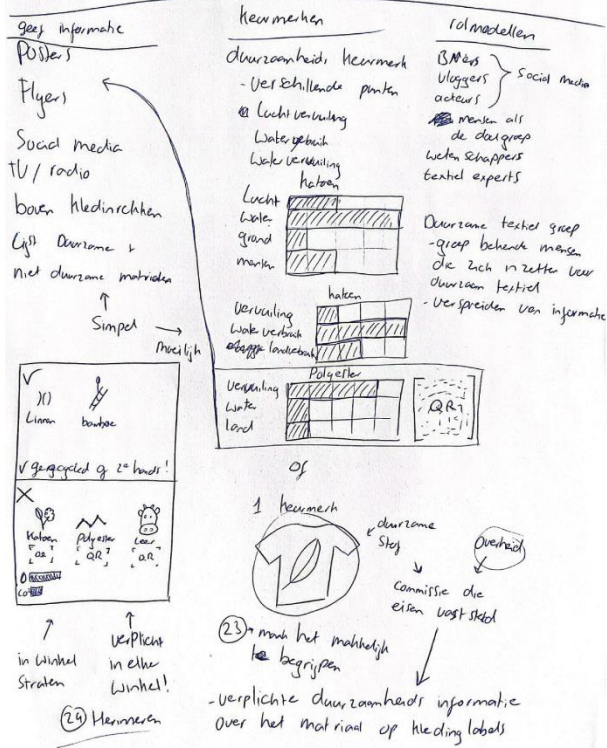 geef informatie
Posters
Flyers
Social media
TV / radio
boven kledingrekken
Lijst Duurzame +
niet duurzame matrialen
Simpel
moeilijk
✓
Linnen bamboe
✓ gerecycled of 2e hands!
X
Katoen Polyester Leer
QR QR QR
in winkel
Straten
verplicht
in elke
winkel!
24 Herinneren
keurmerken
duurzaamheids keurmerk
- verschillende punten
Luchtvervuiling
Watergebruik
Watervervuiling
katoen
Lucht
Water
grond
mensen
katoen
Vervuiling
Waterverbruik
landverbruik
Polyester
Vervuiling
Water
land
QR
of
1 keurmerk
duurzame
Stof
Overheid
Commissie die
eisen vaststeld
23 maak het makkelijk
te begrijpen
- verplichte duurzaamheids informatie
over het matriaal op kledinglabels
rolmodellen
BNers
vloggers
acteurs
Social media
mensen als
de doelgroep
wetenschappers
textiel experts
Duurzame textiel groep
- groep bekende mensen
die zich inzetten voor
duurzaam textiel
- verspreiden van informatie